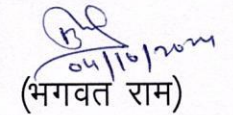 04/10/2024
(भगवत राम)